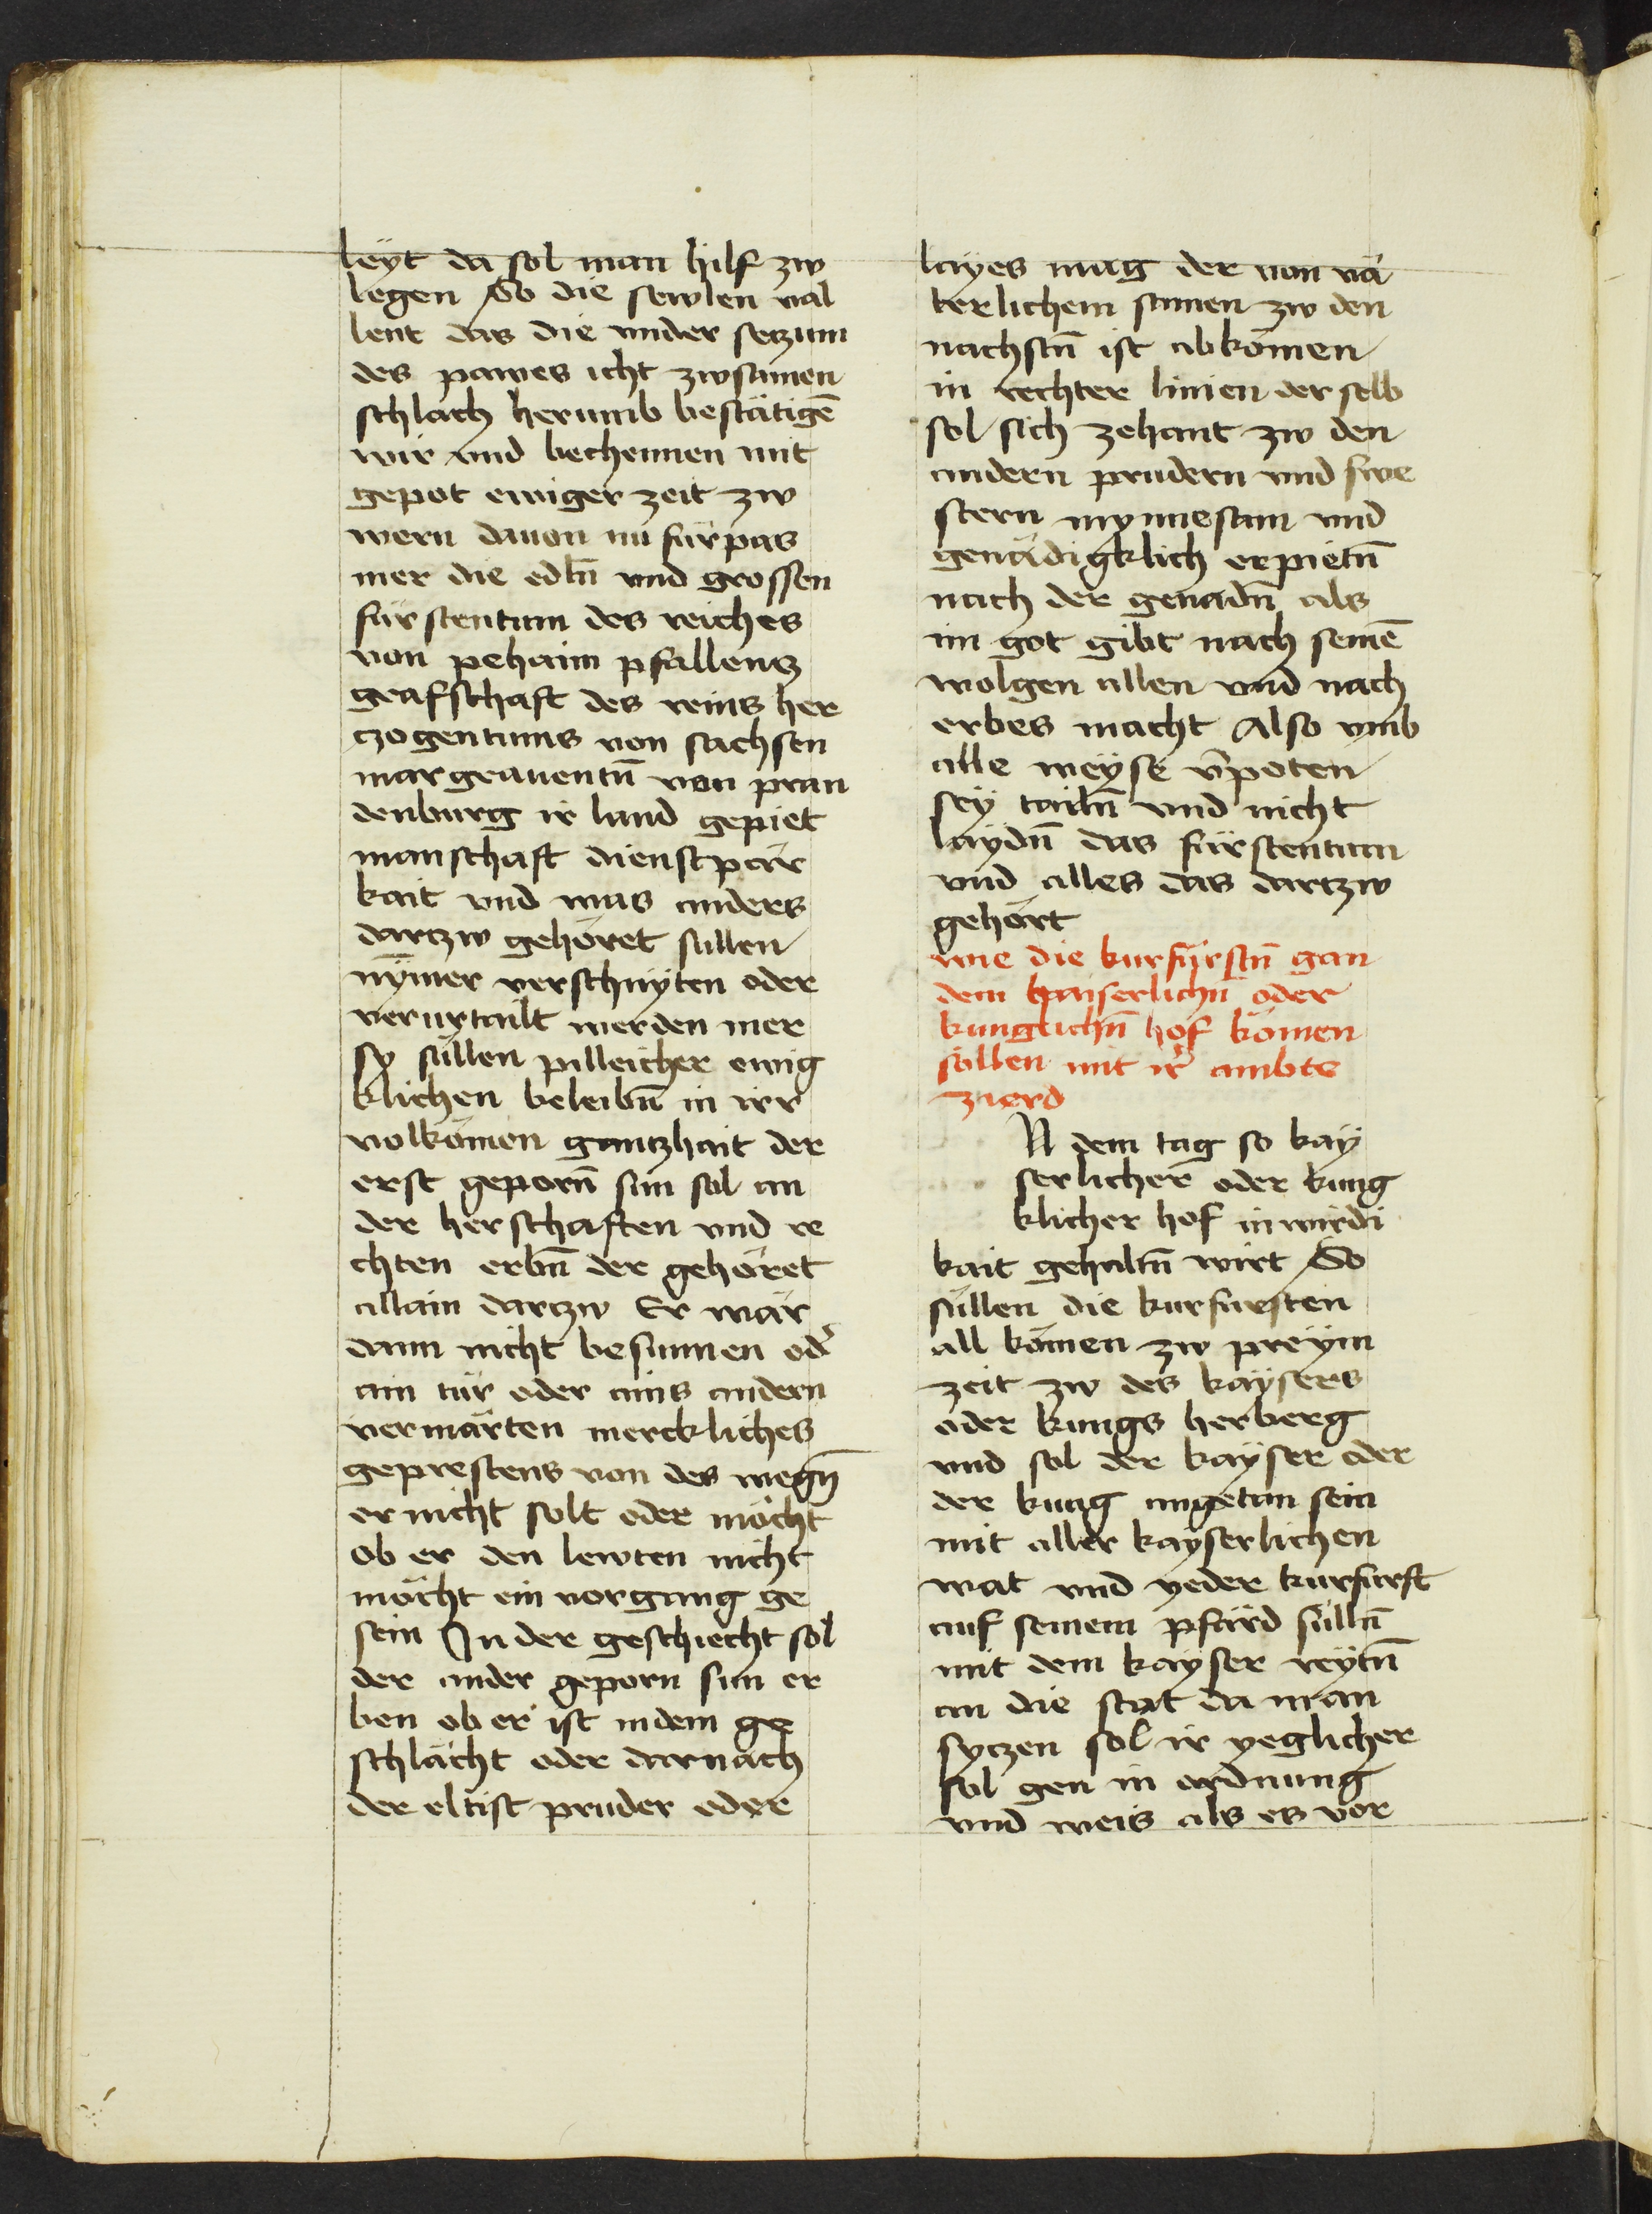 leyt da sol man hilf zw
legen So die sewlen val
lent das die vnder seczum
des pawes icht zwsamen
schlach herumb bestätigē
wir vnd bechennen mit
gepot ewiger zeit zw
wern dauon nu fürpas
mer die edln̄ vnd grossen
fürstentum des reiches
von pehaim pfallencz
grafschaft des reins her
czogentums von sachsen
margrauentū von pran
denburg ir land gepiet
manschaft dienstpär
kait vnd was anders
dartzw gehöret sullen
nȳmer verschnyten oder
verurtailt werden mer
sy süllen pilleicher ewig
klichen beleibn̄ in irr
volkōmen gantzhait der
erst geporn̄ sun sol an
der herschaften vnd re
chten erbn̄ der gehöret
allain dartzw Er wär
dann nicht besunnen od̄
ain tür oder ains andern
vermärten merckliches
geprestens von des wegn̄
er nicht solt oder möcht
ob er den lewten nicht
möcht ein vorgang ge
sein In der geschiecht sol
der ander geporn sun er
ben ob er ist in dem ge
schlächt oder darnach
der eltist pruder oder
layes mag der von vä
terlichem samen zw den
nachstn̄ ist abkōmen
in rechter linien der selb
sol sich zehant zw den
andern prudern vnd swe
stern mynnesam vnd
genädigklich erpietn̄
nach der genadn̄ als
im got gibt nach seinē
wolgen allen vnd nach
erbes macht Also vmb
alle weyse v̄poten
sey tailn̄ vnd nicht
laydn̄ das fürstentum
vnd alles das dartzw
gehört
wie die kurfürstn̄ gan
dem kaiserlichn̄ oder
kunglichn̄ hof kōmen
sollen mit ir̄ ambts
zierd
N dem tag so kay
serlicher oder kung
klicher hof in wirdi
kait gehaltn̄ wirt So
süllen die kurfürsten
all kömen zw preym
zeit zw des kaysers
oder kungs herberg
vnd sol der kayser oder
der kung angetan sein
mit aller kayserlichen
wat vnd yeder kurfurst
auf seinem pfärd sülln̄
mit dem kayser reytn̄
an die stat da man
syczen sol ir yeglicher
sol gen in ordnung
vnd weis als es vor